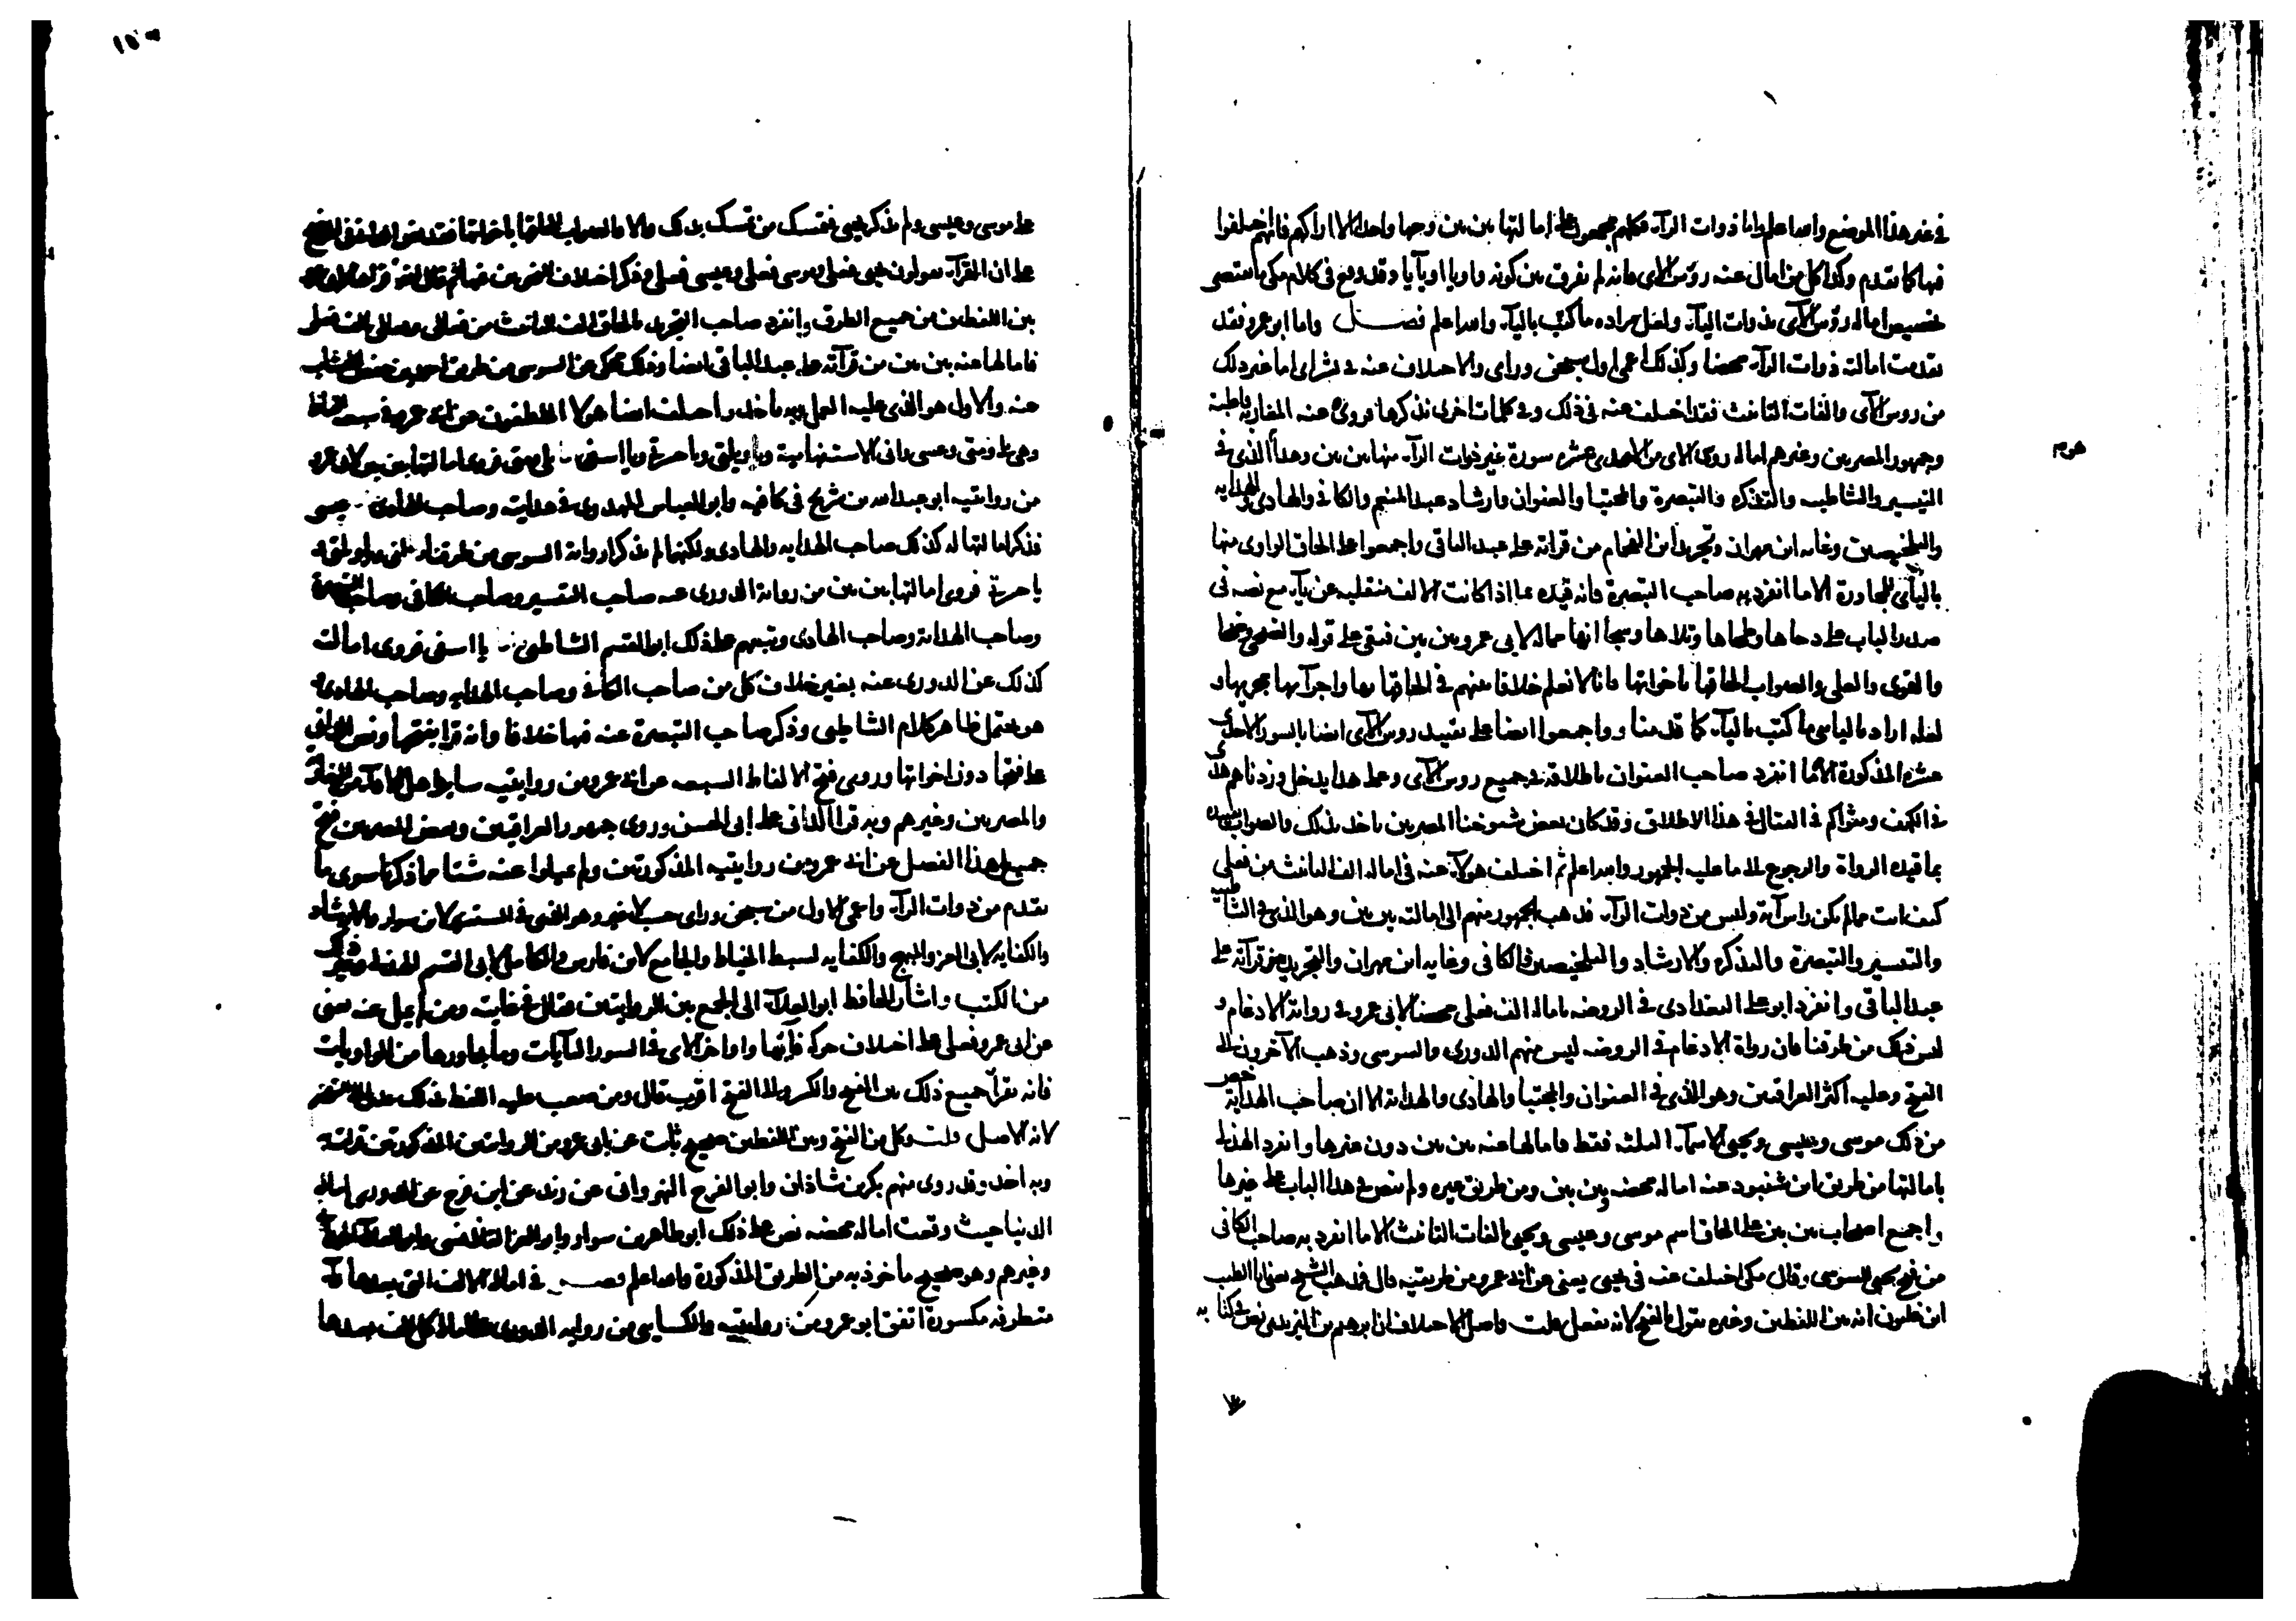 في غير هذا الموضع والله اعلم واما ذوات الرآء فكلهم مجمعون على امالتها بين بين وجها واحدا الا اراكهم فانهم اختلفوا
فيها كما تقدم وكذا كل من امال عنه رؤس الاى فانه لم يفرق بين كونه واويا او يآيا وقد وقع في كلام مكى ما يقتضى
تخصيص اماله رؤس الآى بذوات اليآء ولعل مراده ما كتب باليآء والله اعلم فصل واما ابو عمرو فقد
تقدمت امالته ذوات الرآء محضا وكذلك اعمى اول سبحن وراى والاختلاف عنه في بشراى اما غير ذلك
من روس الآى والفات التانيث فقد اختلف عنه في ذلك وفي كلمات اخرى نذكرها فروى عنه المغاربه قاطبة
وجمهور المصريين وغيرهم اماله روس الاى من الاحدى عشره سورة غير ذوات الرآء منها بين بين وهذا الذى في
التيسير والشاطبيه والتذكره والتبصرة والمجتبا والعنوان وارشاد عبد المنعم والكافي والهادى والهدايه
والتلخيصين وغايه ابن مهران وتجريد ابن الفحام من قراته على عبد الباقى واجمعوا على الحاق الواوى منها
باليآئى للمجاورة الا ما انفرد به صاحب التبصرة فانه قيده بما اذا كانت الالف منقلبه عن يآء مع نصه في
صدر الباب على دحاها وطحاها وتلاها وسجا انها مماله لابي عمرو بين بين فبقى على قوله والضحى وضحها
والقوى والعلى والصواب الحاقها باخواتها فانا لا نعلم خلافا بينهم في الحاقها بها واجرآئها مجريها و
لعله اراد بالياى ما كتب باليآء كما قدمنا وواجمعوا ايضا على تقييد روس الآى ايضا بالسور الاحدى
عشره المذكورة الا ما انفرد صاحب العنوان باطلاقه في جميع روس الآى وعلى هذا يدخل وزدناهم هدى
في الكهف ومثواكم في القتال في هذا الاطلاق وقد كان بعض شيوخنا المصريين ياخذ بذلك والصواب تقييده
بما قيده الرواة والرجوع الى ما عليه الجمهور والله اعلم ثم اختلف هولآء عنه في اماله الف التانيث من فعلى
كيف اتت مالم يكن راس آية وليس من ذوات الرآء فذهب الجمهور منهم الى امالته بين بين وهو الذى في الشاطبيه
والتيسير والتبصرة والتذكره والارشاد والتلخيصين والكافى وغايه ابن مهران والتجريد من قرآته على
عبد الباقى وانفرد ابو على البغدادى في الروضه باماله الف فعلى محضا لابى عمرو في رواية الادغام و
ليس ذلك من طرقنا فان رواة الادغام في الروضه ليس منهم الدورى والسوسى وذهب الآخرون الى
الفتح وعليه اكثر العراقيين وهو الذى في العنوان والمجتبا والهادى والهداية الا ان صاحب الهداية خص
من ذلك موسى وعيسى ويحيى الاسمآء الثلثه فقط فامالها عنه بين بين دون غيرها وانفرد الهذلى
بامالتها من طريق ابن شنبود عنه اماله محضه وبين بين ومن طريق غيره ولم ينص في هذا الباب على غيرها
واجمع اصحاب بين بين على الحاق اسم موسى وعيسى ويحيى بالفات التانيث الا ما انفرد به صاحب الكافى
من فتح يحيى للسوسى وقال مكى اختلف عنه في يحيى يعنى عن ابى عمرو من طريقيه قال فذهب الشيخ يعنى ابا الطيب
ابن غلبون انه بين اللفظين وغيره يقول بالفتح لانه يفعل قلت واصل الاختلاف ان ابرهيم بن اليزيدى نص في كتابه
على موسى وعيسى ولم يذكر يحيى فتمسك من تمسك بذلك والا فالصواب الحاقها باخواتها فقد نص الدانى
على ان القرآء يقولون يحيى فعلى وموسى فعلى وعيسى فعلى وذكر اختلاف النحويين فيها ثم قال انه قراها
بين اللفظين من جميع الطرق وانفرد صاحب التجريد بالحاق الف التانيث من فعالى وفعالى بالف فعلى
فامالها عنه بين بين من قرآته على عبد الباقى ايضا وذلك محكى عن السوسى من طريق احمد بن حفص الخشاب
عنه والاول هو الذى عليه العمل وبه ناخذ واختلف ايضا هولآ الملطفون عن ابى عمرو في سبعه الفاظ
وهى بلى ومتى وعسى وانى الاستفهامية ويا ويلتى ويا حسرتى ويا اسفى بلى ومتى فروى امالتها بين بين لابى عمرو
من روايتيه ابو عبد الله بن شريح في كافيه وابو العباس المهدوى في هدايته وصاحب الهادى عسى
فذكر امالتها له كذلك صاحب الهدايه والهادى ولكنهما لم يذكرا رواية السوسى من طرقنا انى ويا ويلتى و
يا حسرتى فروى امالتها بين بين من رواية الدورى عنه صاحب التيسير وصاحب الكافى وصاحب التبصرة
وصاحب الهداية وصاحب الهادى وتبعهم على ذلك ابو القسم الشاطبى يا اسفى فروى امالته
كذلك عن الدورى عنه بغير خلاف كل من صاحب الكافى وصاحب الهدايه وصاحب الهادى و
هو يحتمل ظاهر كلام الشاطبى وذكر صاحب التبصرة عنه فيها خلافا وانه قرا بفتحها ونص الدانى
على فتحها دون اخواتها وروى فتح الالفاظ السبعه عن ابى عمرو من روايتيه سائر اهل الادآء من المغاربه
والمصريين وغيرهم وبه قرا الدانى على ابى الحسن وروى جمهور العراقيين وبعض المصريين فتح
جميع هذا الفصل عن ابى عمرو من روايتيه المذكورتين ولم يميلوا عنه شيئا مما ذكرنا سوى ما
تقدم من ذوات الرآء واعمى الاول من سبحن وراى حسب لا غير وهو الذى في المستنير لابن سوار والارشاد
والكفايه لابى العز والمبهج والكفايه لسبط الخياط والجامع لابن فارس والكامل لابى القسم الهذلى وغير ذلك
من الكتب واشار الحافظ ابو العلآء الى الجمع بين الروايتين فقال في غايته ومن لم يمل عنه يعنى
عن ابى عمرو فعلى على اختلاف حركه فآئها واواخر الاى في السور اليآيات وما جاورها من الواويات
فانه يقرآ جميع ذلك بين الفتح والكسر والى الفتح اقرب قال ومن صعب عليه اللفظ بذلك عدل الى التفخيم
لانه الاصل قلت وكل من الفتح وبين اللفظين صحيح ثابت عن ابى عمرو من الروايتين المذكورتين قرات به
وبه اخذ وقد روى منهم بكر بن شاذان وابو الفرج النهروانى عن زيد عن ابن فرح عن الدورى اماله
الدنيا حيث وقعت اماله محضه نص على ذلك ابو طاهر بن سوار وابو العز القلانسى وابو العلآء
وغيرهم وهو صحيح ماخوذ به من الطريق المذكورة والله اعلم فصل في اماله الالف التى بعدها رآء
متطرفه مكسورة اتفق ابو عمرو من روايتيه والكسايى من روايه الدورى على اماله كل الف بعدها